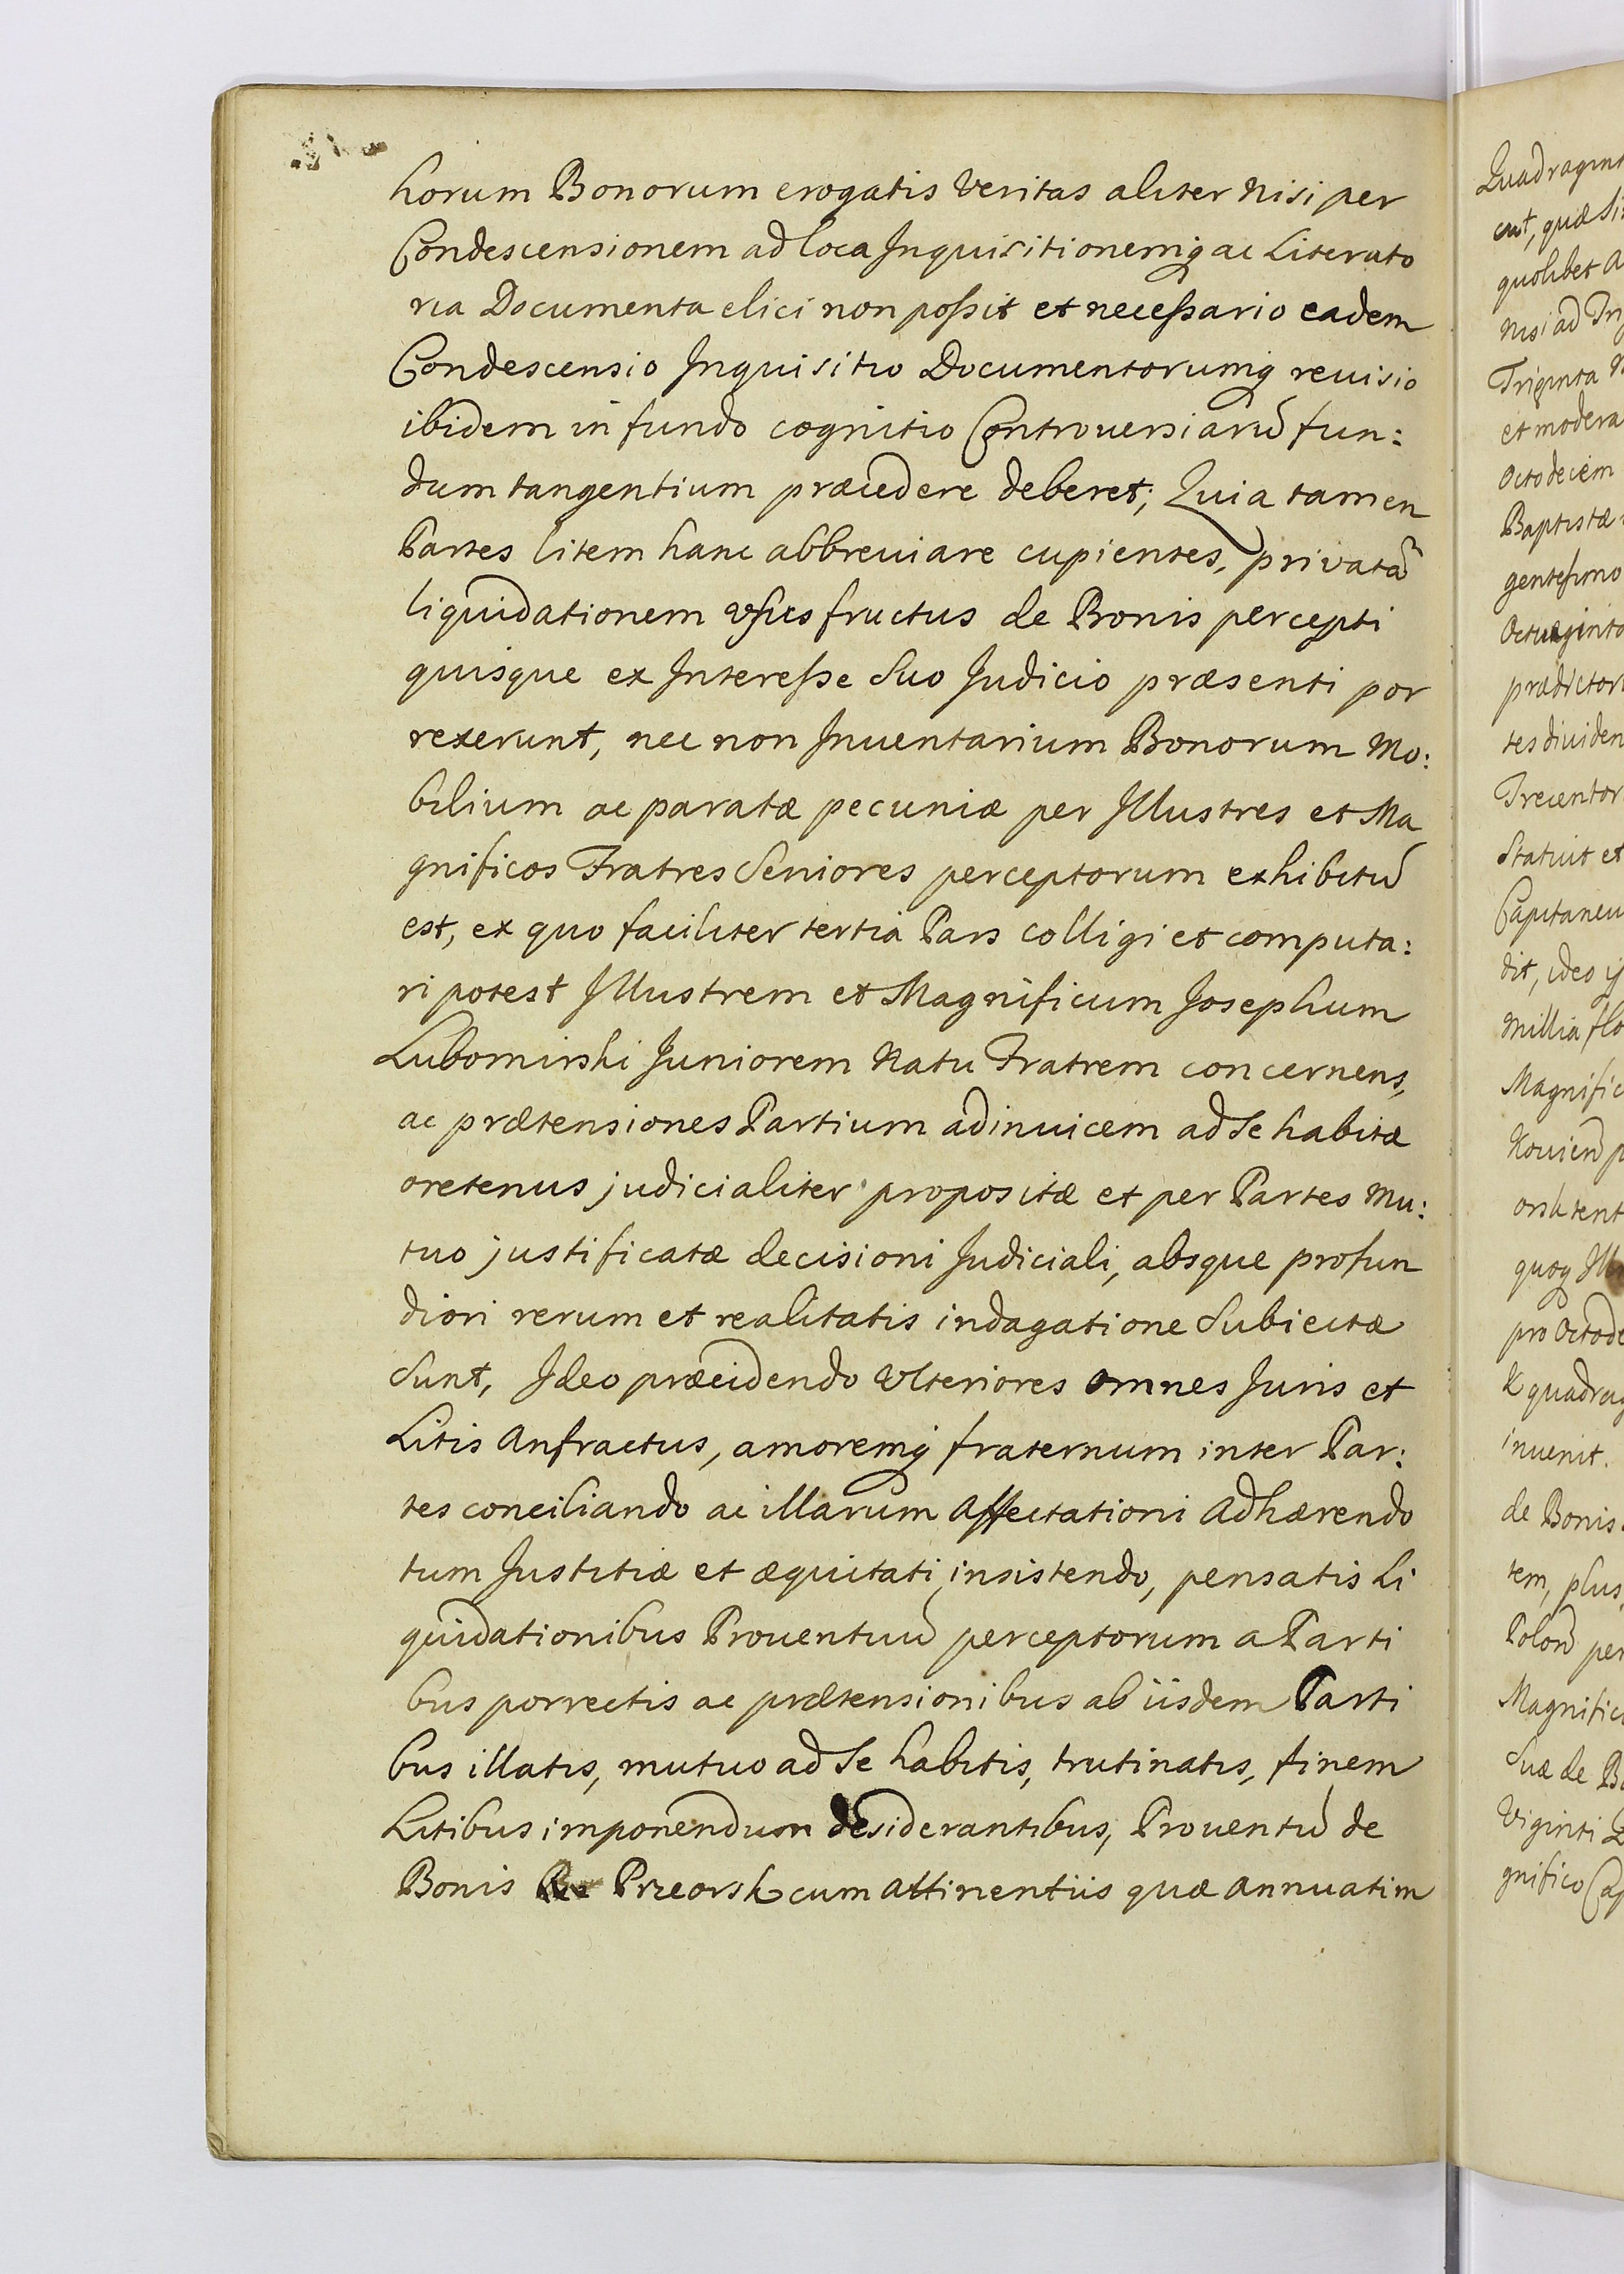 horum Bonorum erogatis Veritas aliter nisi per
Condescensionem ad loca Inquisitionemq̃ ac Literato
ria Documenta elici non poſsit et neceſsario eadem
Condescensio Inquisitio Documentorumq̃ reuisio
ibidem in fundo cognitio Controuersiarũ fun:
dum tangentium præcedere deberet; Quia tamen
Partes litem hanc abbreuiare cupientes, privatã
liquidationem uſus fructus de Bonis percepti
quisque ex Intereſse Suo Judicio præsenti por
rexerunt, nec non Inuentarium Bonorum Mo:
bilium ac paratæ pecuniæ per Illustres et Ma
gnificos Fratres Seniores perceptorum exhibitũ
est, ex quo faciliter tertia Pars colligi et computa:
ri potest Illustrem et Magnificum Josephum
Lubomirski Juniorem Natu Fratrem concernens,
ac prætensiones Partium adinuicem ad se habitæ
oretenus judicialiter propositæ et per Partes Mu:
tuo justificatæ decisioni Judiciali, absque profun
diori rerum et realitatis indagatione Subiectæ
Sunt, Ideo præcidendo Ulteriores omnes Juris et
Litis Anfractus, amoremq̃ fraternum inter Par:
tes conciliando ac illarum Affectationi Adhærendo
tum Justitiæ et æquitati insistendo, pensatis Li
quidationibus Prouentuũ perceptorum a Parti
bus porrectis ac prætensionibus ab iisdem Parti
bus illatis, mutuo ad Se habitis, trutinatis, finem
Litibus imponendum desiderantibus, Prouentũ de
Bonis Przeorsk cum Attinentiis quæ Annuatim
Quadragint
quæ si
quolibet A
nisi ad Tri
Triginta
et modera
Octodecem
Baptistæ
gentesimo
prædictor
tes diuiden
Trecentor
Statuit et
Capitaneu
dit, ideo
millia flo
Magnific
orsk tent
quoq̃ Ill
pro Octode
quadrag
inuenit.
de Bonis
tem, plus
Polon̄ per
Magnific
Suæ de Bo
Viginti
gnifico Cap